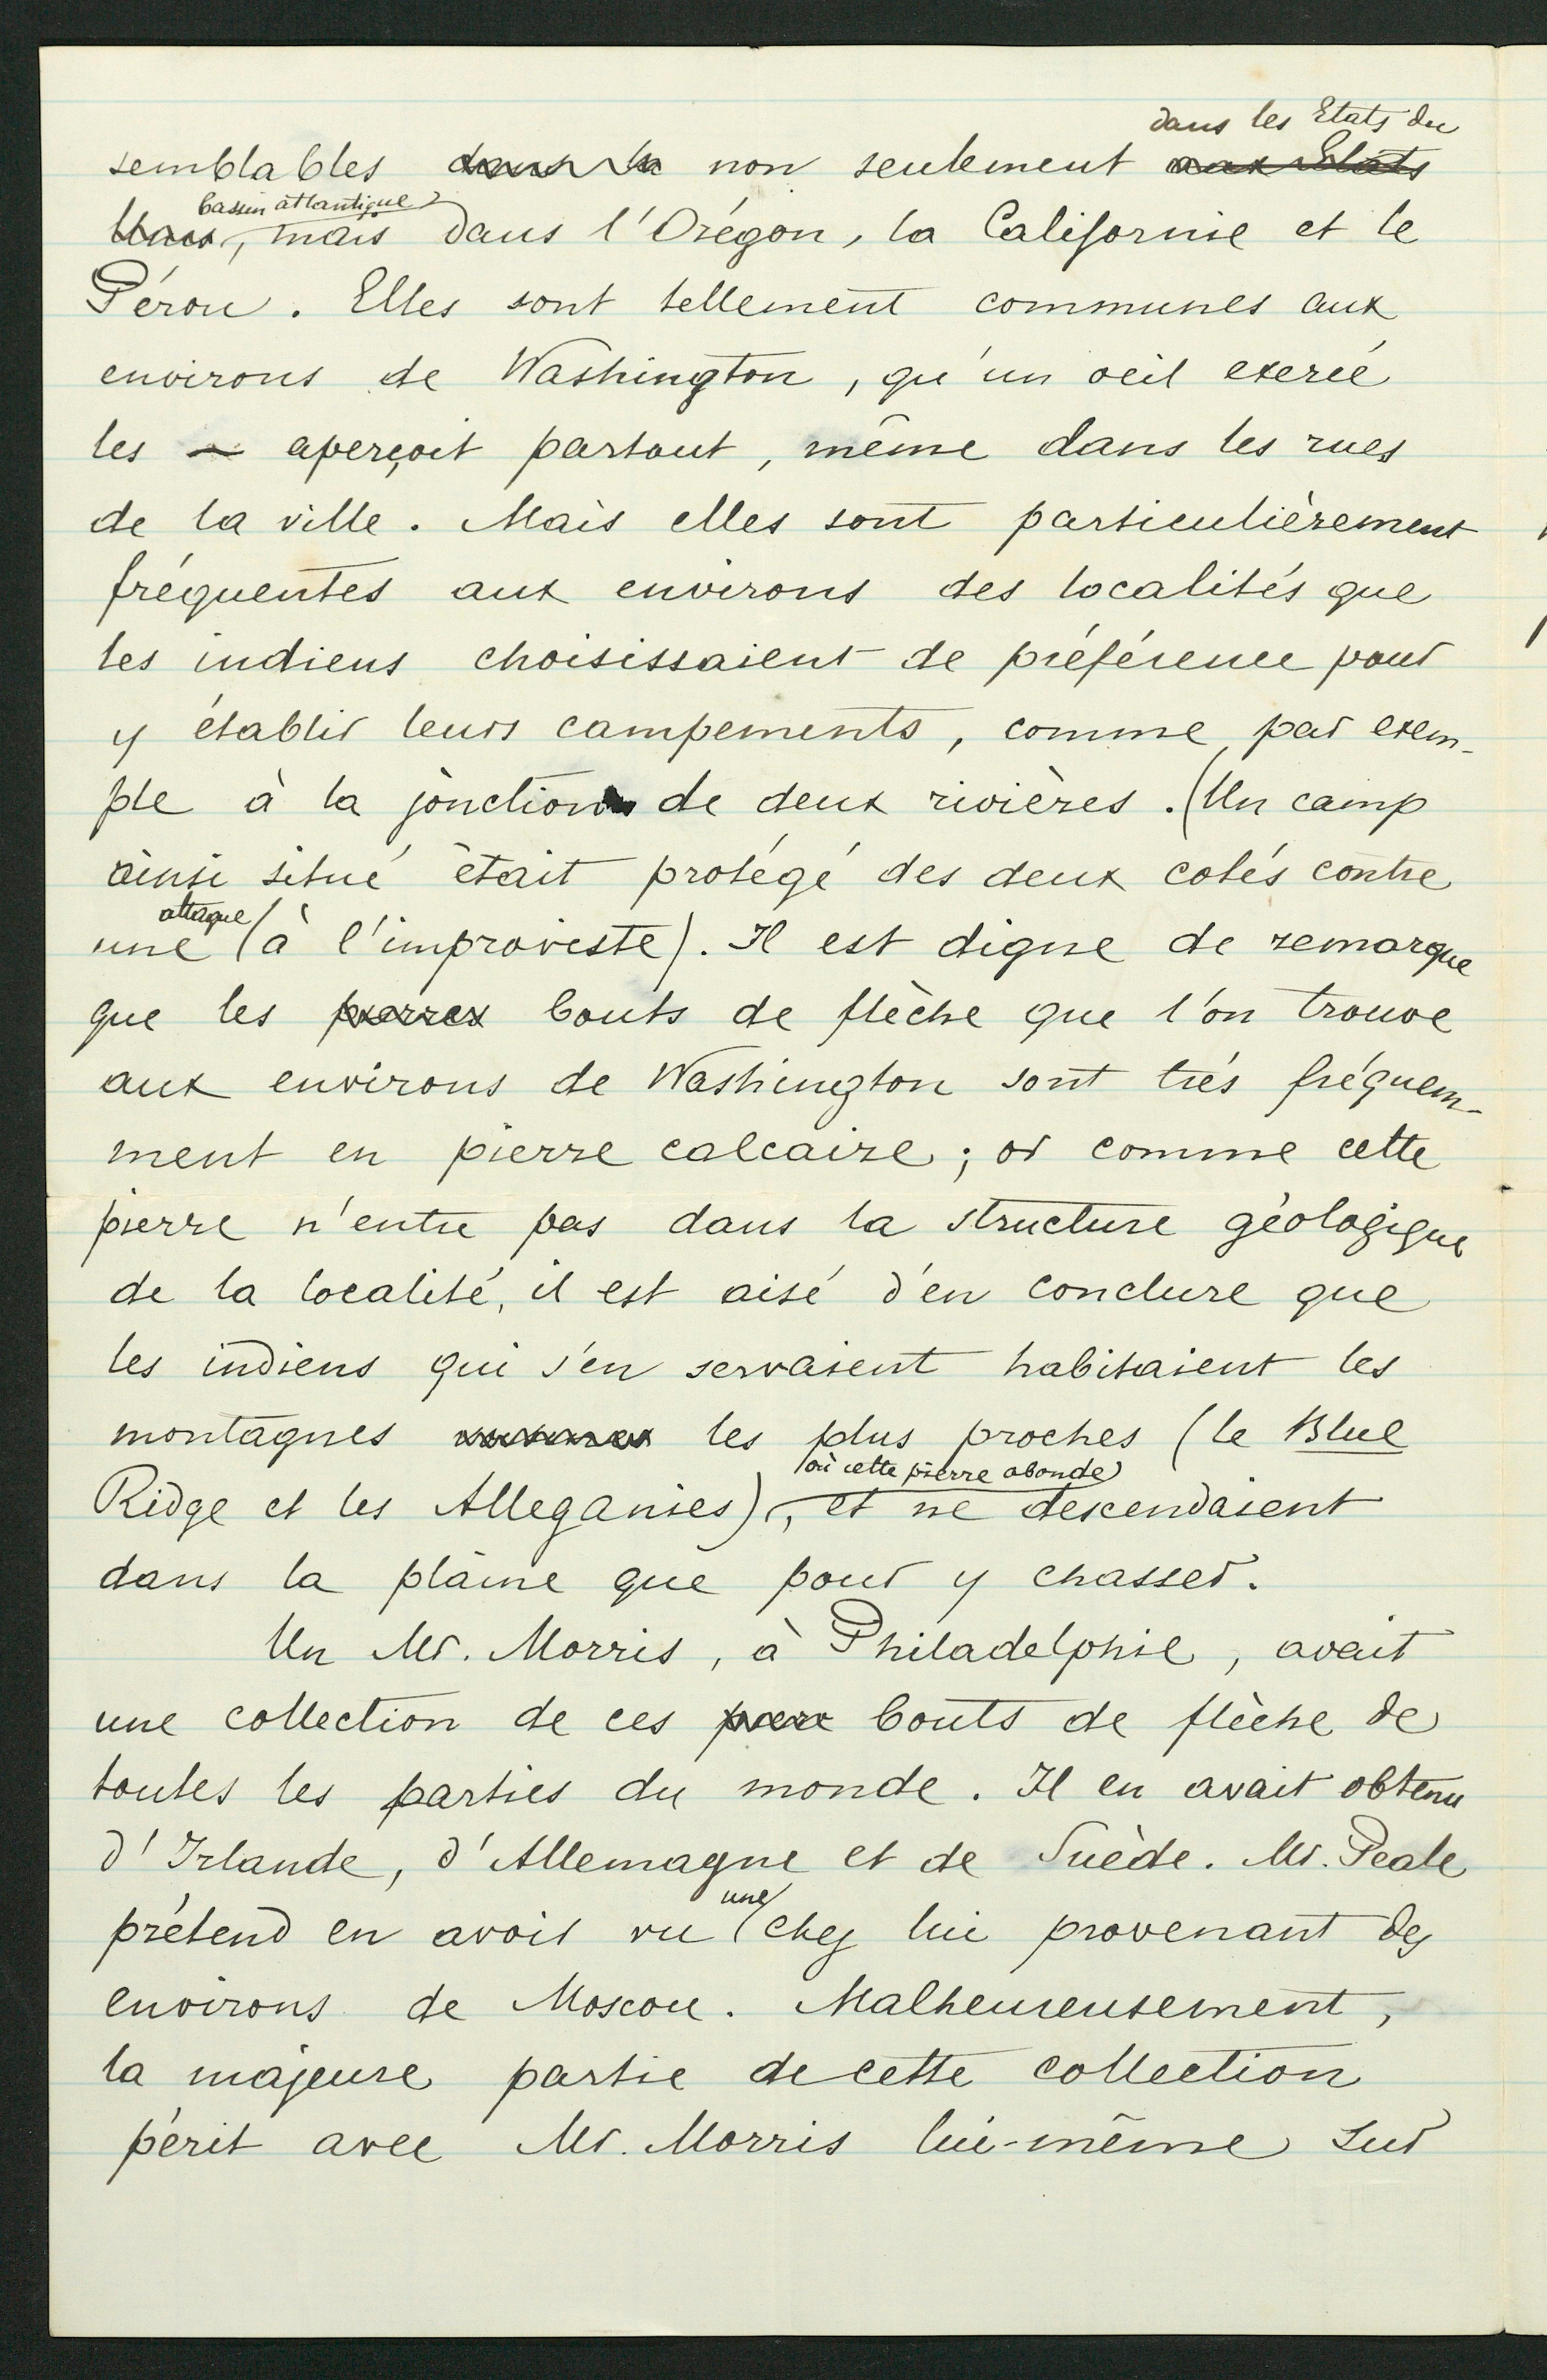 dans les Etats du
semblables non seulement aux Etats
bassin atlantique
Unis, mais dans l'Orégon, la Californie et le
Pérou. Elles sont tellement communes aux
environs de Washington, qu'un oeil exercé
les aperçoit partout, même dans les rues
de la ville. Mais elles sont particulièrement
fréquentes aux environs des localités que
les indiens choisissaient de préférence pour
y établir leurs campements, comme, par exem-
ple à la jonction de deux rivières. (Un camp
ainsi situé était protégé des deux cotés contre
attaque
une à l'improviste). Il est digne de remarque
que les pierres bouts de flèche que l'on trouve
aux environs de Washington sont très fréquem-
ment en pierre calcaire; or comme cette
pierre n'entre pas dans la structure géologique
de la localité, il est aisé d'en conclure que
les indiens qui s'en servaient habitaient les
montagnes les plus proches (le Blue
où cette pierre abonde
Ridge et les Alleganies), et ne descendaient
dans la plaine que pour y chasser.
Un Mr. Morris, à Philadelphie, avait
une collection de ces bouts de flèche de
toutes les parties du monde. Il en avait obtenu
d'Irlande, d'Allemagne et de Suède. Mr. Peale
une
prétend en avoir vu chez lui provenant des
environs de Moscou. Malheureusement,
la majeure partie de cette collection
périt avec Mr. Morris lui-même sur